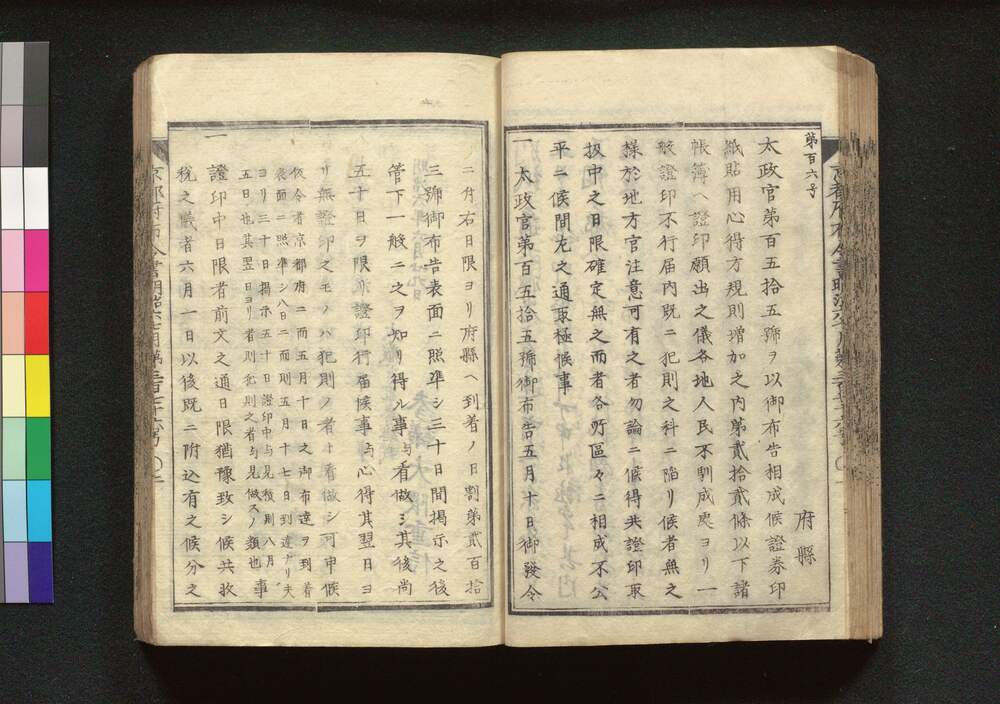 第百六号
府縣
太政官第百五拾五號ヲ以御布告相成候證券印
紙貼用心得方規則増加之内第貳拾貳條以下諸
帳簿ヘ證印願出之儀各地人民不馴成處ヨリ一
般證印不行届内既ニ犯則之科ニ陥リ候者無之
様於地方官注意可有之者勿論ニ候得共證印取
扱中之日限確定無之而者各所區々ニ相成不公
平ニ候間左之通取極候事
一 太政官第百五拾五號御布告五月十日御發令
ニ付右日限ヨリ府縣ヘ到着ノ日割第貳百拾
三號御布告表面ニ照準シ三十日間掲示之後
管下一般ニ之ヲ知リ得ル事与看做シ其後尚
五十日ヲ限リ證印行届候事与心得其翌日ヨ
リ無證印之モノハ犯則ノ者ト看做シ可申候
仮令者京都府ニ而五月十日之御布達ヲ到着
表面ニ照準シ八日ニ而則五月十七日到達ナリ夫
ヨリ三十日掲示五十日證印中与見積則八月
五日也其翌日ヨリ者則犯則之者与見做スノ類也 事
一 證印中日限者前文之通日限猶豫致シ候共収
税之儀者六月一日以後既ニ附込有之候分之